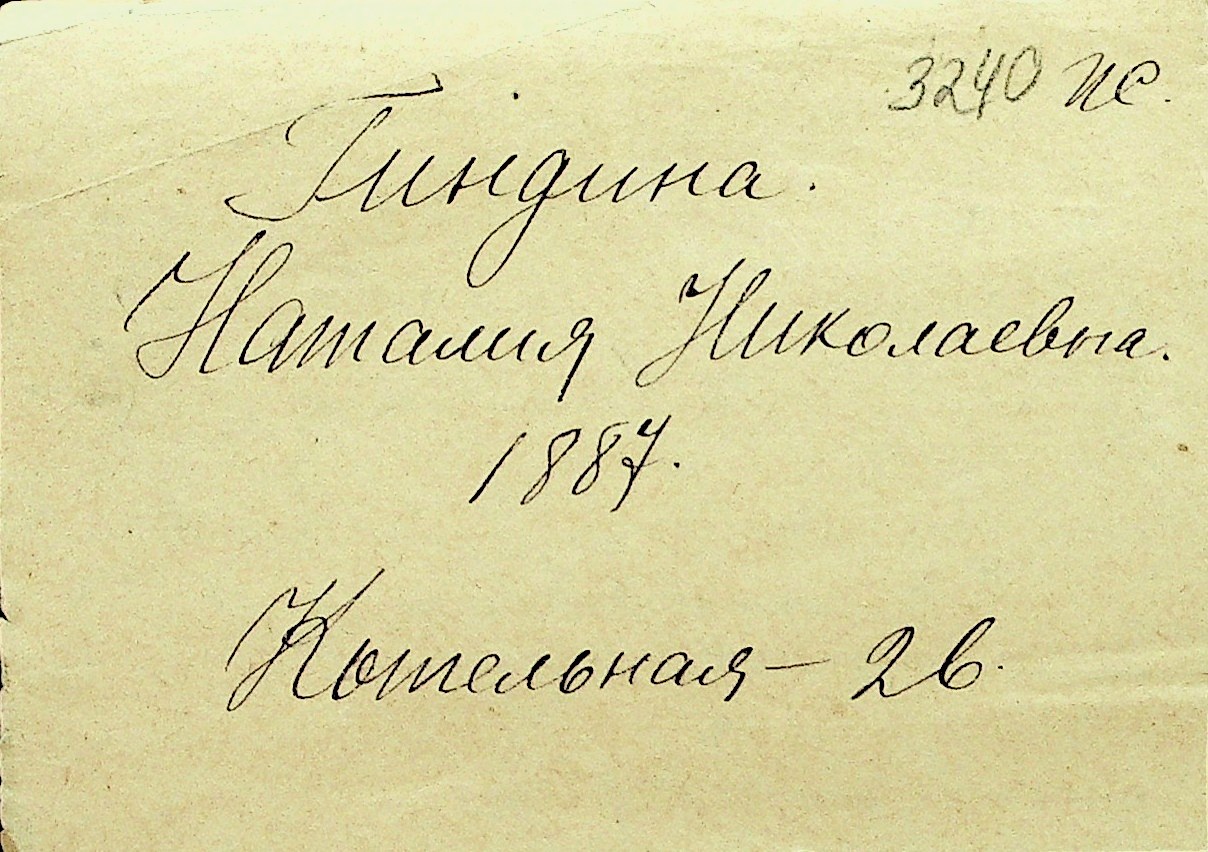 3240 пс.
Гиндина.
Наталия Николаевна.
1887.
Котельная – 2в.